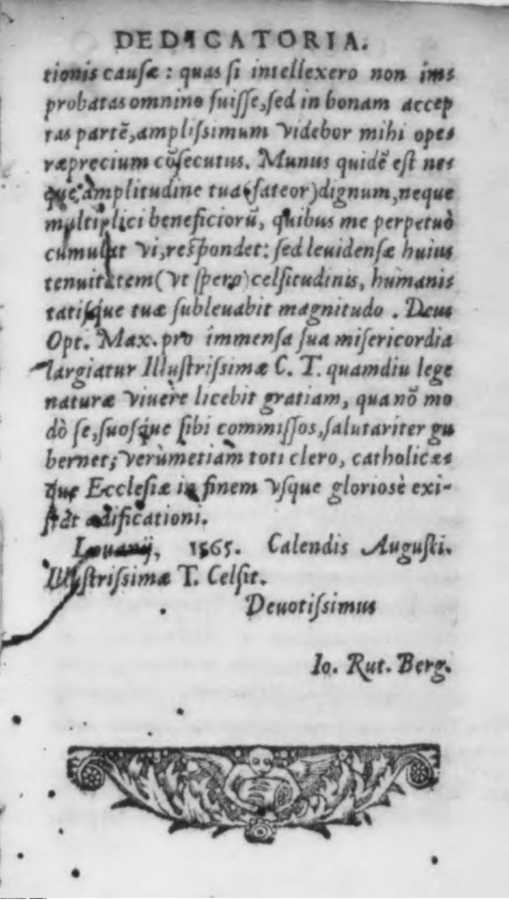 DEDICATORIA.
tionis causæ: quas si intellexero non im⸗
probatas omnino fuisse, sed in bonam accep
tas partẽ, amplissimum videbor mihi ope⸗
ræprecium cõsecutus. Munus quidẽ est ne⸗
que amplitudine tua (fateor) dignum, neque
multiplici beneficiorũ, quibus me perpetuò
cumulat vi, respondet: sed leuidensæ huius
tenuitatem (vt spero) celsitudinis, humani⸗
tatisque tuæ subleuabit magnitudo. Deus
Opt. Max. pro immensa sua misericordia
largiatur Illustrissimæ C. T. quamdiu lege
naturæ viuere licebit gratiam, qua nõ mo
dò se, suosque sibi commissos, salutariter gu
bernet, verùmetiam toti clero, catholicæ⸗
que Ecclesiæ in finem vsque gloriosè exi-
stat ædificationi.
Louanij, 1565. Calendis Augusti.
Illustrissimæ T. Celsit.
Deuotissimus
Io. Rut. Berg.